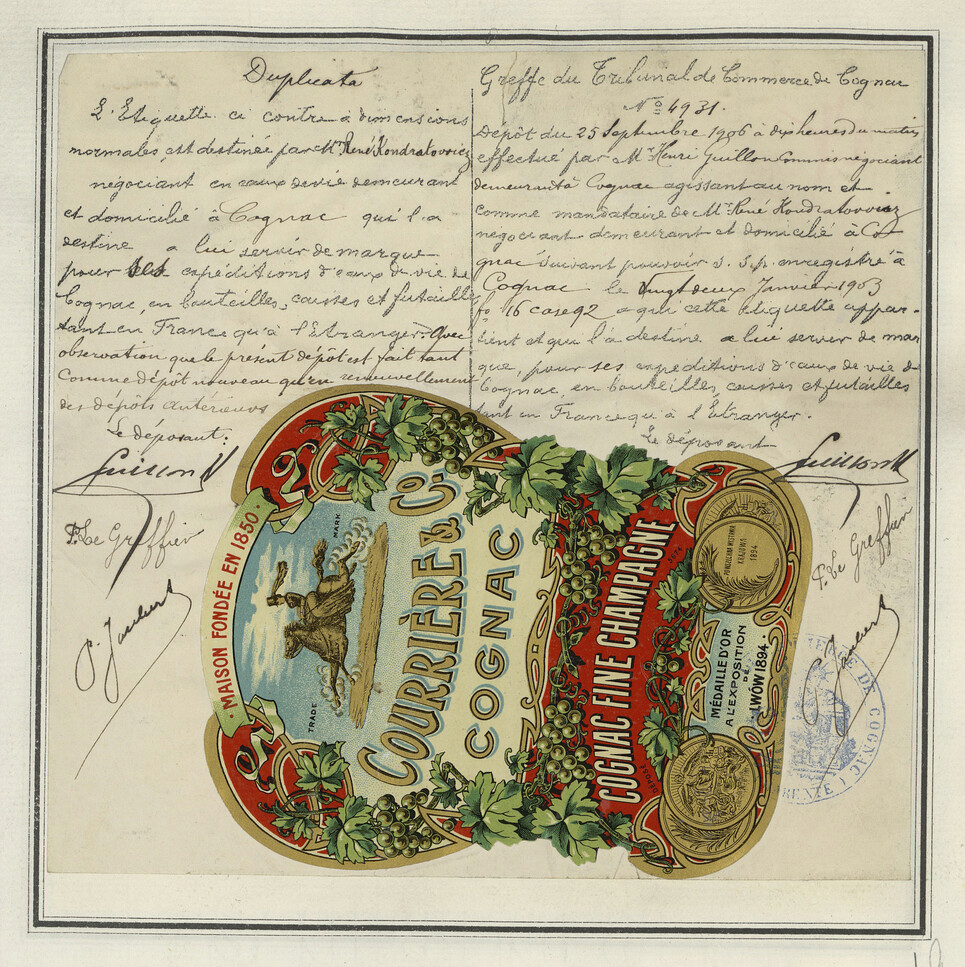 Duplicata
L'Etiquette ci contre a dimensions
normales, est destinée par Mr René Kondratowicz
négociant en eaux de vie demeurant
et domicilié à Cognac qui l'a
destine a lui servir de marque
pour ses expéditions d'eaux de vie de
Cognac, en bouteilles, caisses et futailles
tant en France qu'à l'Etranger. Avec
observation que le présent dépôt est fait tant
comme dépôt nouveau qu'en renouvellement
des dépôts antérieurs
Le déposant:
Guillon H
P. Le Greffier
P. Joubert
Greffe du Tribunal de Commerce de Cognac
No 4931.
Dépôt du 25 Septembre 1906 à dix heures du matin
effectué par Mr Henri Guillon Commis négociant
demeurant à Cognac agissant au nom et
comme mandataire de Mr René Kondratowicz
négociant demeurant et domicilié à Co-
gnac suivant pouvoir S. S. p. enregistré à
Cognac le vingt deux Janvier 1903
fo 16 case 92 a qui cette étiquette appar-
tient et qui l'a destine a lui servir de mar
que, pour ses expéditions d'eaux de vie de
Cognac, en bouteilles, caisses et futailles
tant en France qu'à l'Étranger.
Le déposant
Guillon H
P. Le Greffier
Joubert
MAISON FONDÉE EN 1850
TRADE MARK
COURRIÈRE & Co.
COGNAC
COGNAC FINE CHAMPAGNE
DÉPOSÉ
POWSZECHNA WYSTAWA
KRAJOWA
1894
MÉDAILLE D'OR
A L'EXPOSITION
DE
LWÓW 1894.
DE COGNAC